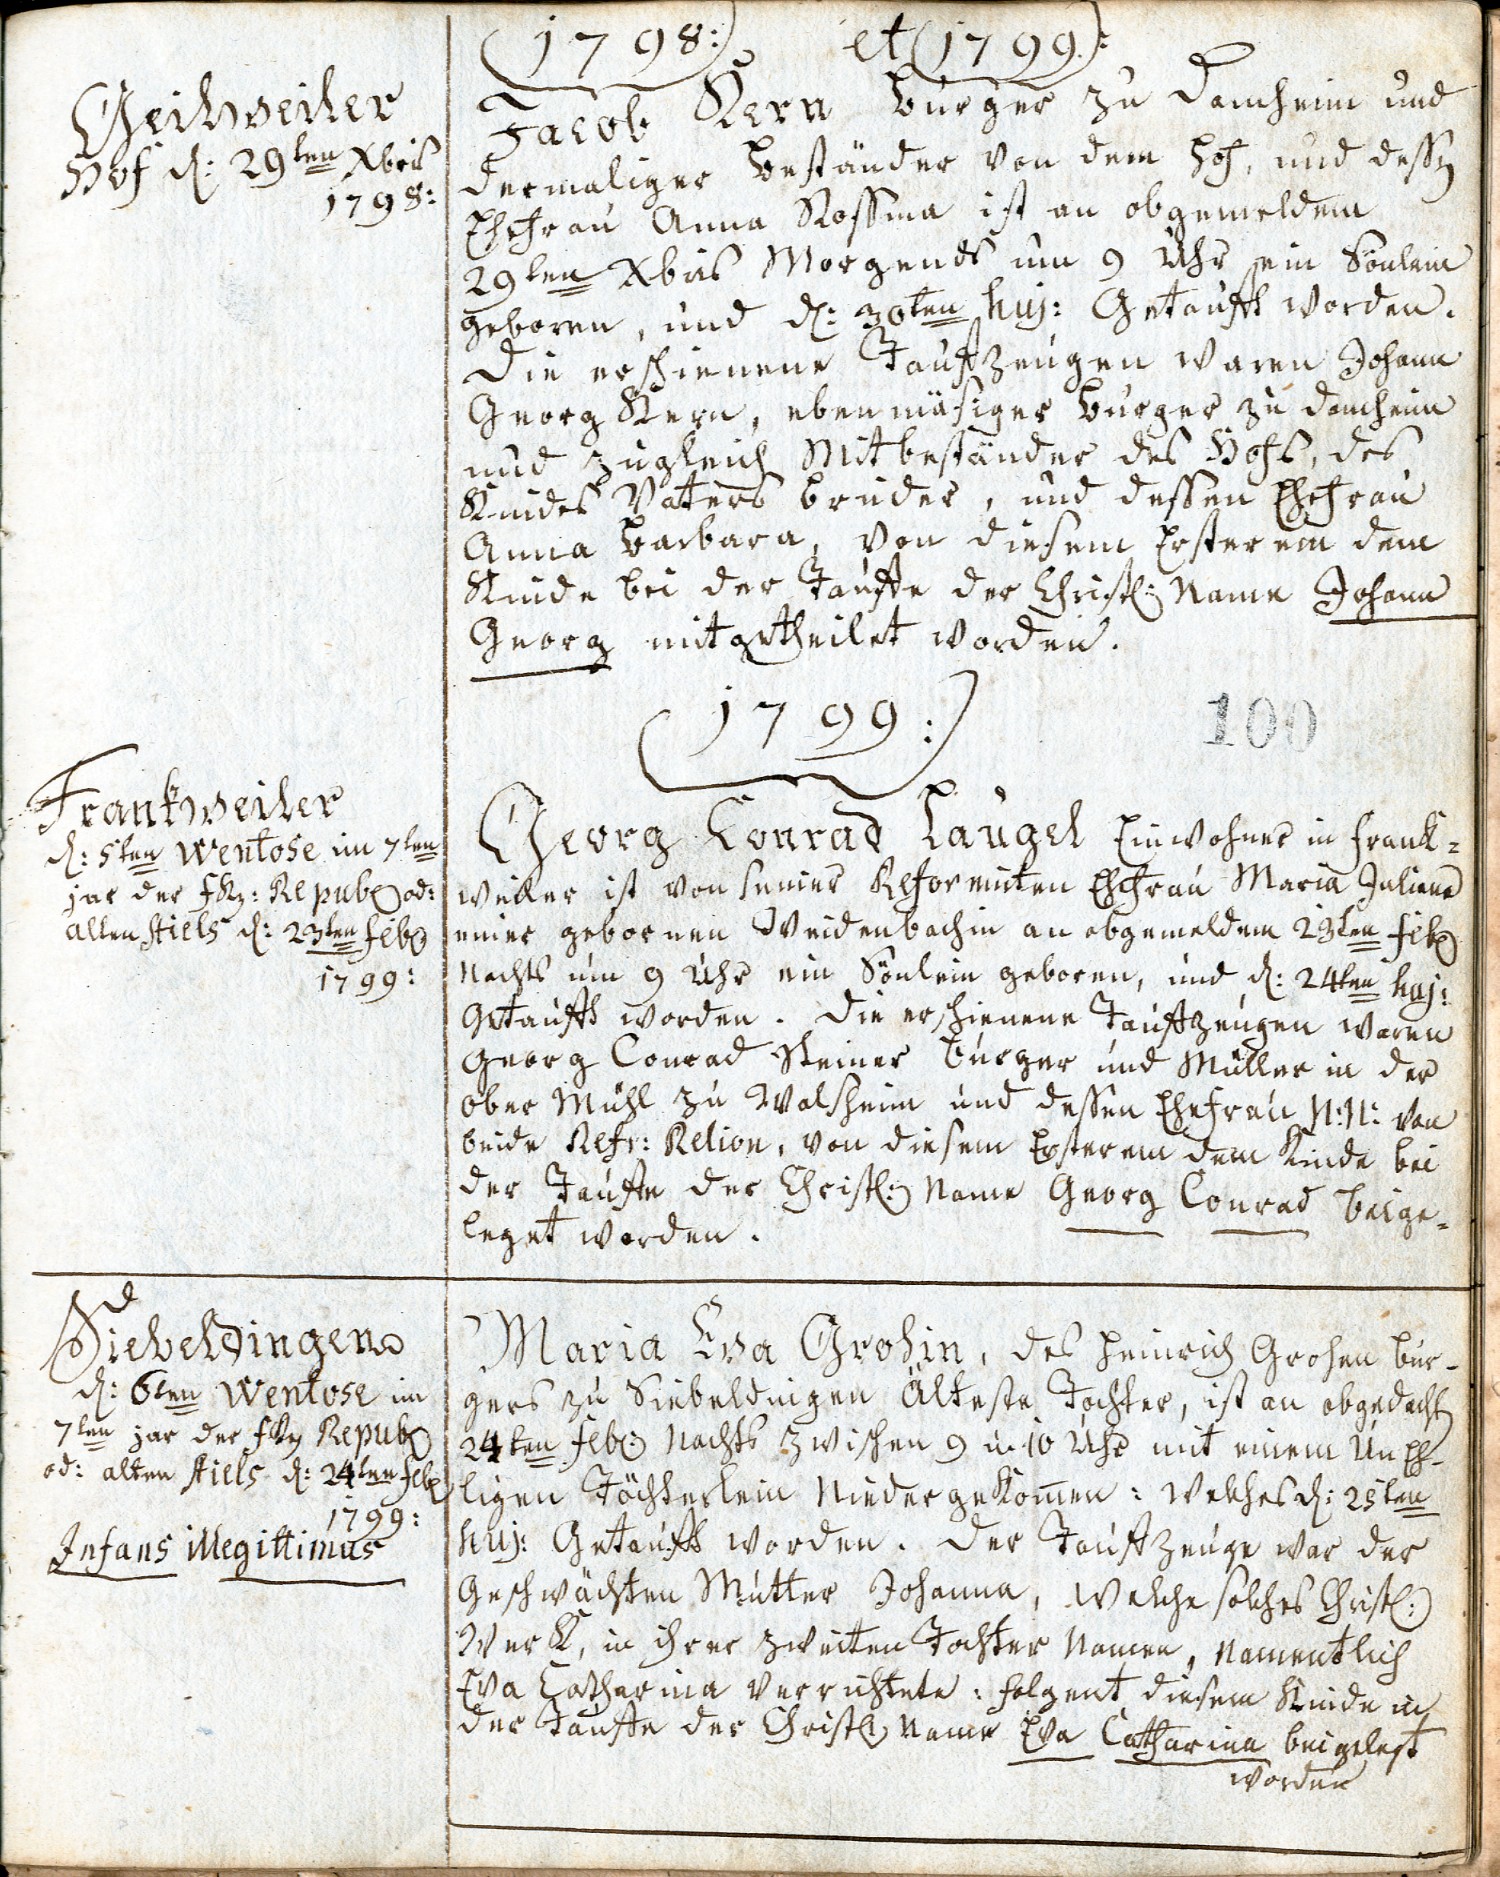 1798: et 1799:
Geilweiler
Hof d: 29ten Xbris
1798:
Jacob Kern Burger zu Damheim und
dermaliger Beständer von dem Hof, und dessen
Ehefrau Anna Rossina ist an obgemeldem
29ten Xbris Morgends um 9 Uhr ein Sönlein
geboren, und d: 30ten huj: Getaufft worden.
Die erschienene Taufzeugen waren Johann
Georg Kern, ebenmäsiger Burger zu Damheim
und zugleich Mitbeständer des Hofs, des
Kindes Vaters Bruder, und dessen Ehefrau
Anna Barbara, von diesem Ersterem dem
Kinde bei der Tauffe der Christl: Name Johann
Georg mitgetheilet worden.
1799:
100
Frankweiler
d: 5ten Wentose im 7ten
jar der fkz: Republ od:
alten Stiels d: 23ten feb
1799:
Georg Conrad Laugel Einwohner in Frank=
weiler ist von seiner Reformirten Ehefrau Maria Juliana
einer gebornen Weidenbachin an obgemeldem 23ten feb
Nachts um 9 Uhr ein Sönlein geboren, und d: 24ten huj:
Getaufft worden. Die erschienene Taufzeugen waren
Georg Conrad Steiner Burger und Müller in der
ober Mühl zu Walsheim und dessen Ehefrau N:N: von
beide Refr: Relion, von diesem Ersterem dem Kinde bei
der Tauffe der Christl: Name Georg Conrad beige=
leget worden.
Siebeldingen
d: 6ten Wentose im
7ten jar der fkz Republ
od: alten Stiels d: 24ten feb
1799:
Infans illegittimus
Maria Eva Grohin, des Heinrich Grohen Bur-
gers zu Siebeldingen Älteste Tochter, ist an obgedacht
24ten feb: Nachts zwischen 9 u 10 Uhr mit einem UnEh-
ligen Töchterlein Niedergekommen: welches d: 25ten
huj: Getaufft worden. Der Taufzeuge war der
Geschwächten Mutter Johanna, welche solches Christl:
Werk, in ihrer zweiten Tochter Namen, Namentlich
Eva Catharina verrichtete: folgent diesem Kinde in
der Tauffe der Christl: Name Eva Catharina beigelegt
worden